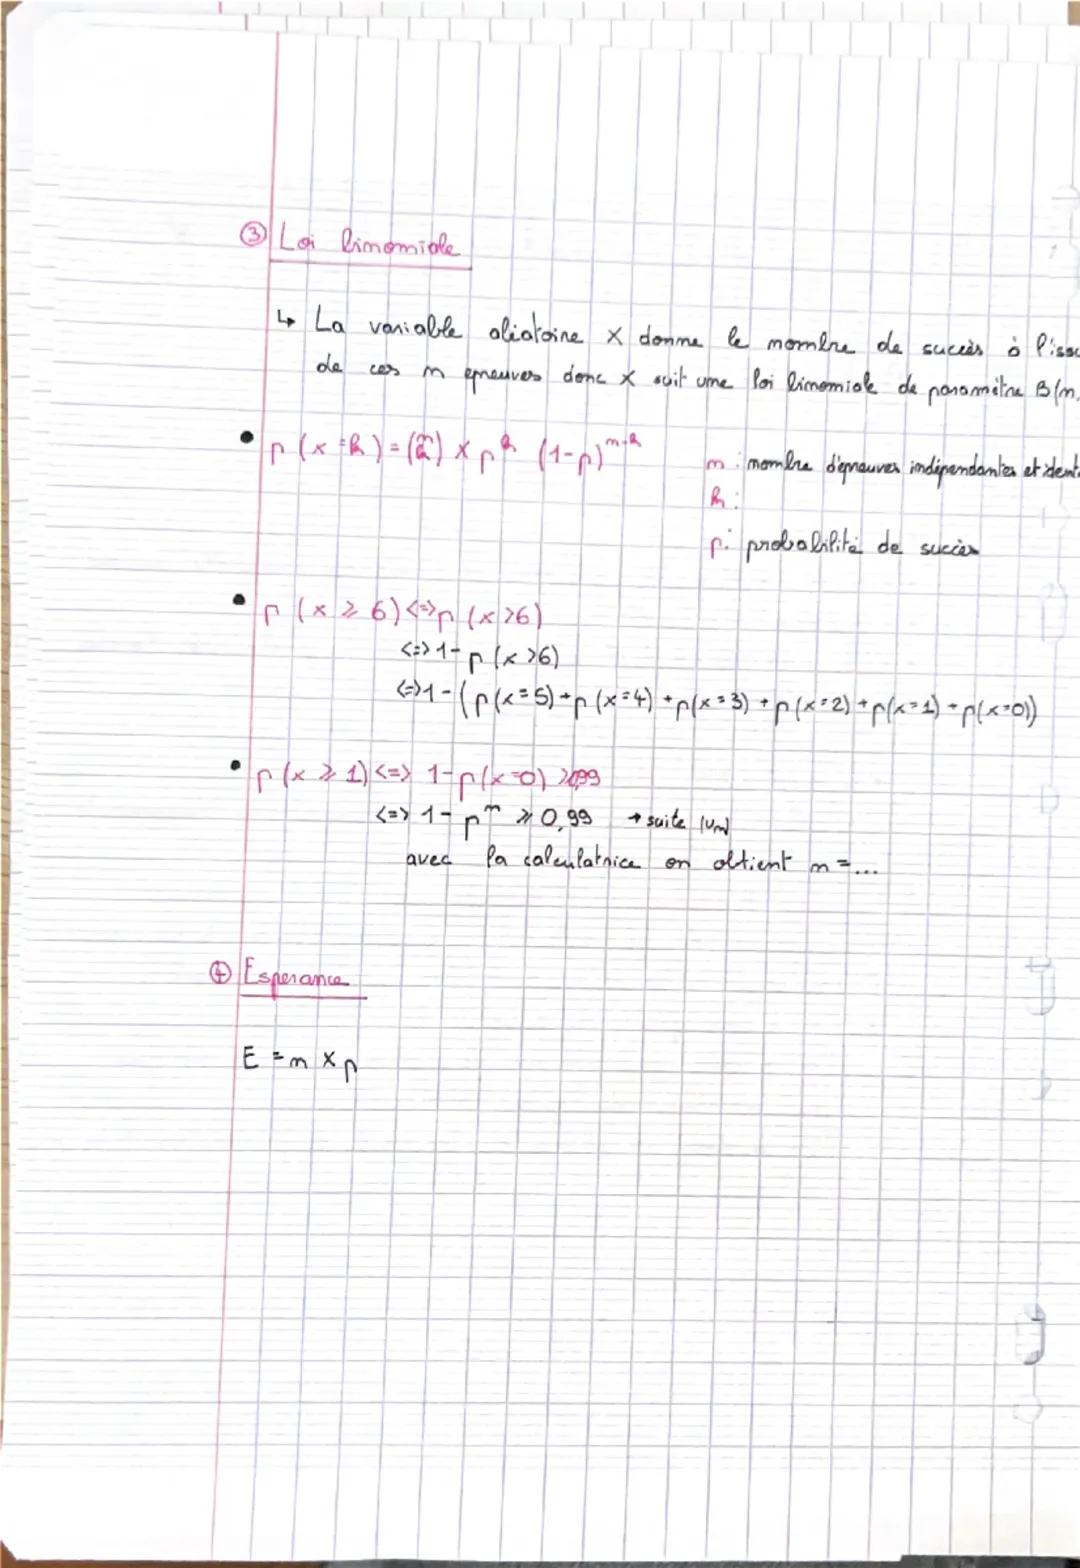 ③ Loi binomiale
↳ La variable aléatoire X donne le nombre de succès à l'issu
de ces n épreuves donc X suit une loi binomiale de paramètre B(n,
• p(x=k) = (n k) × p^k (1-p)^n-k
n : nombre d'épreuves indépendantes et ident
k :
p : probabilité de succès
• p(x ⩾ 6) <=> p(x >6)
<=> 1- p(x >6)
<=> 1 - (p(x=5) + p(x=4) + p(x=3) + p(x=2) + p(x=1) + p(x=0))
• p(x ⩾ 1) <=> 1-p(x=0) ⩾0,99
<=> 1 - p^n ⩾ 0,99 → suite (Un)
avec la calculatrice on obtient n =...
④ Esperance
E = n × p